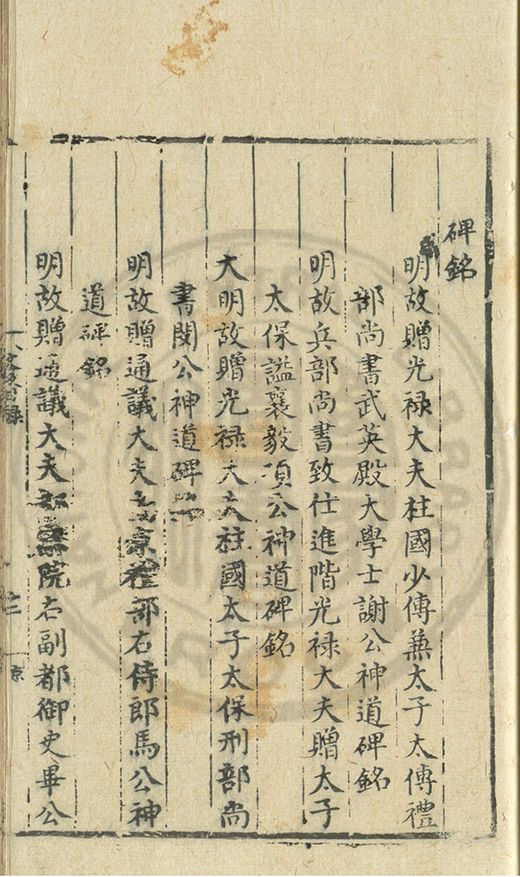 碑銘
明故贈光禄大夫柱國少傅兼太子太傅禮
部尚書武英殿大學士謝公神道碑銘
明故兵部尚書致仕進階光禄大夫贈太子
太保謚襄毅項公神道碑銘
大明故贈光禄大夫柱國太子太保刑部尚
書閔公神道碑
明故贈通議大夫京禮部右侍郎馬公神
道碑銘
明故贈通議大夫都察院右副都御史畢公